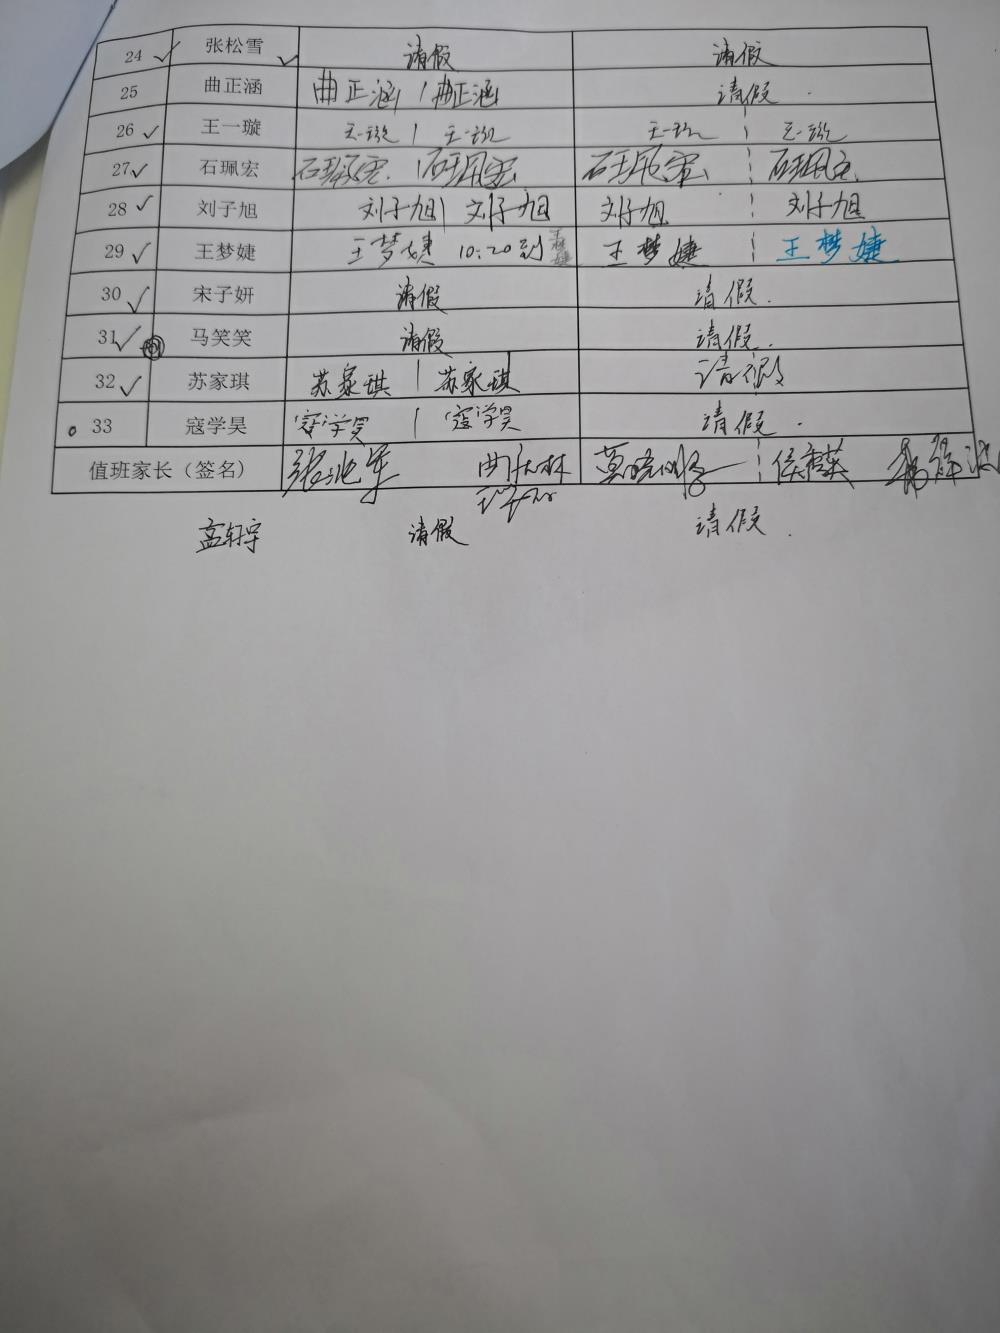 24 张松雪 请假 请假
25 曲正涵 曲正涵 曲正涵 请假
26 王一璇 王一璇 王一璇 王一璇 王一璇
27 石珮宏 石珮宏 石珮宏 石珮宏 石珮宏
28 刘子旭 刘子旭 刘子旭 刘子旭 刘子旭
29 王梦婕 王梦婕 10:20到 王梦婕 王梦婕 王梦婕
30 宋子妍 请假 请假
31 马笑笑 请假 请假
32 苏家琪 苏家琪 苏家琪 请假
33 寇学昊 寇学昊 寇学昊 请假
值班家长（签名）
孟轩宇 请假 请假